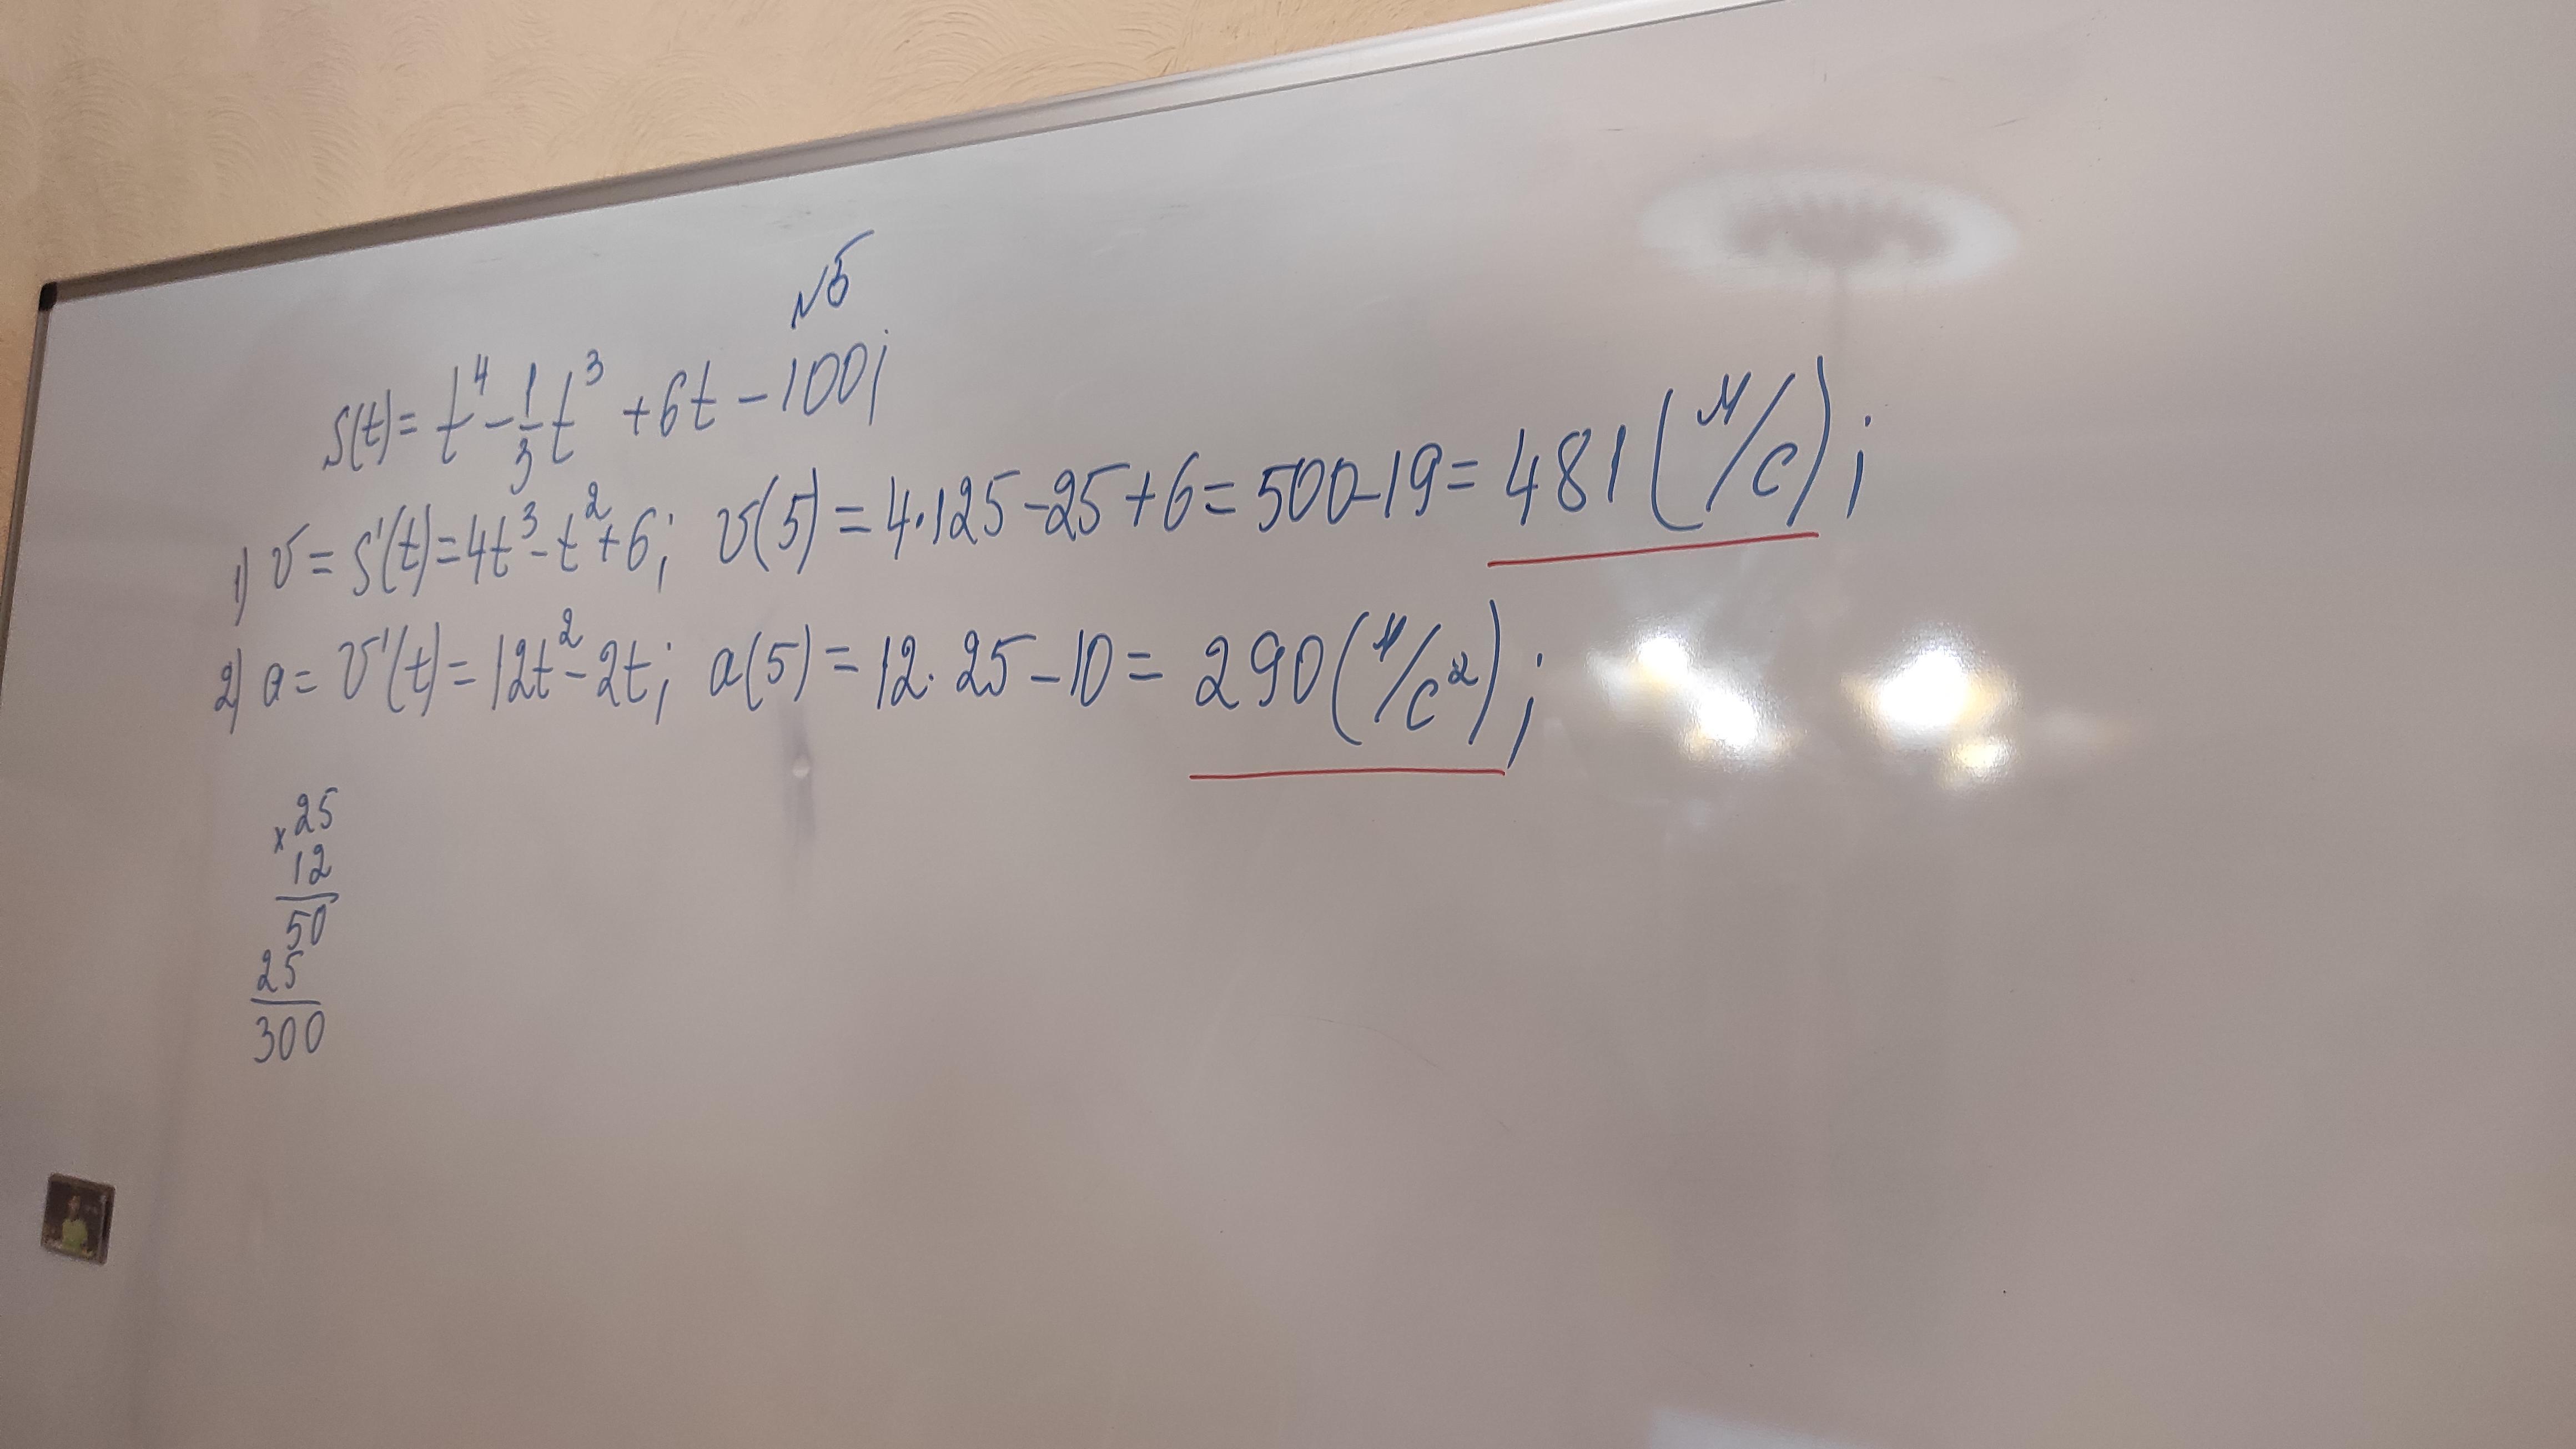 №5
S(t) = t⁴ - 1/3 t³ + 6t - 100;
1) v = S'(t) = 4t³ - t² + 6; v(5) = 4·125 - 25 + 6 = 500 - 19 = 481 (м/с);
2) a = v'(t) = 12t² - 2t; a(5) = 12·25 - 10 = 290 (м/с²);
× 25
12
50
25
300